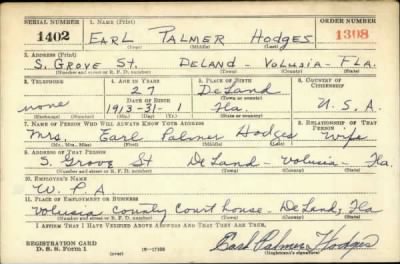 SERIAL NUMBER 1. NAME (Print) ORDER NUMBER
1402 EARL PALMER HODGES 1308
(First) (Middle) (Last)
2. ADDRESS (Print)
S. GROVE ST. DELAND - VOLUSIA - FLA.
(Number and street or R. F. D. number) (Town) (County) (State)
3. TELEPHONE 4. AGE IN YEARS 5. PLACE OF BIRTH 6. COUNTRY OF CITIZENSHIP
27 DeLand
(Town or county)
none DATE OF BIRTH
1913-31-1 Fla. U. S. A.
(Exchange) (Number) (Mo.) (Day) (Yr.) (State or country)
7. NAME OF PERSON WHO WILL ALWAYS KNOW YOUR ADDRESS 8. RELATIONSHIP OF THAT PERSON
Mrs. Earl Palmer Hodges Wife
(Mr., Mrs., Miss) (First) (Middle) (Last)
9. ADDRESS OF THAT PERSON
S. Grove St DeLand - Volusia - Fla
(Number and street or R. F. D. number) (Town) (County) (State)
10. EMPLOYER'S NAME
W. P. A
11. PLACE OF EMPLOYMENT OR BUSINESS
Volusia County Court house - DeLand, Fla
(Number and street or R. F. D. number) (Town) (County) (State)
I AFFIRM THAT I HAVE VERIFIED ABOVE ANSWERS AND THAT THEY ARE TRUE.
REGISTRATION CARD
D. S. S. Form 1 (over) Earl Palmer Hodges
(Registrant's signature)